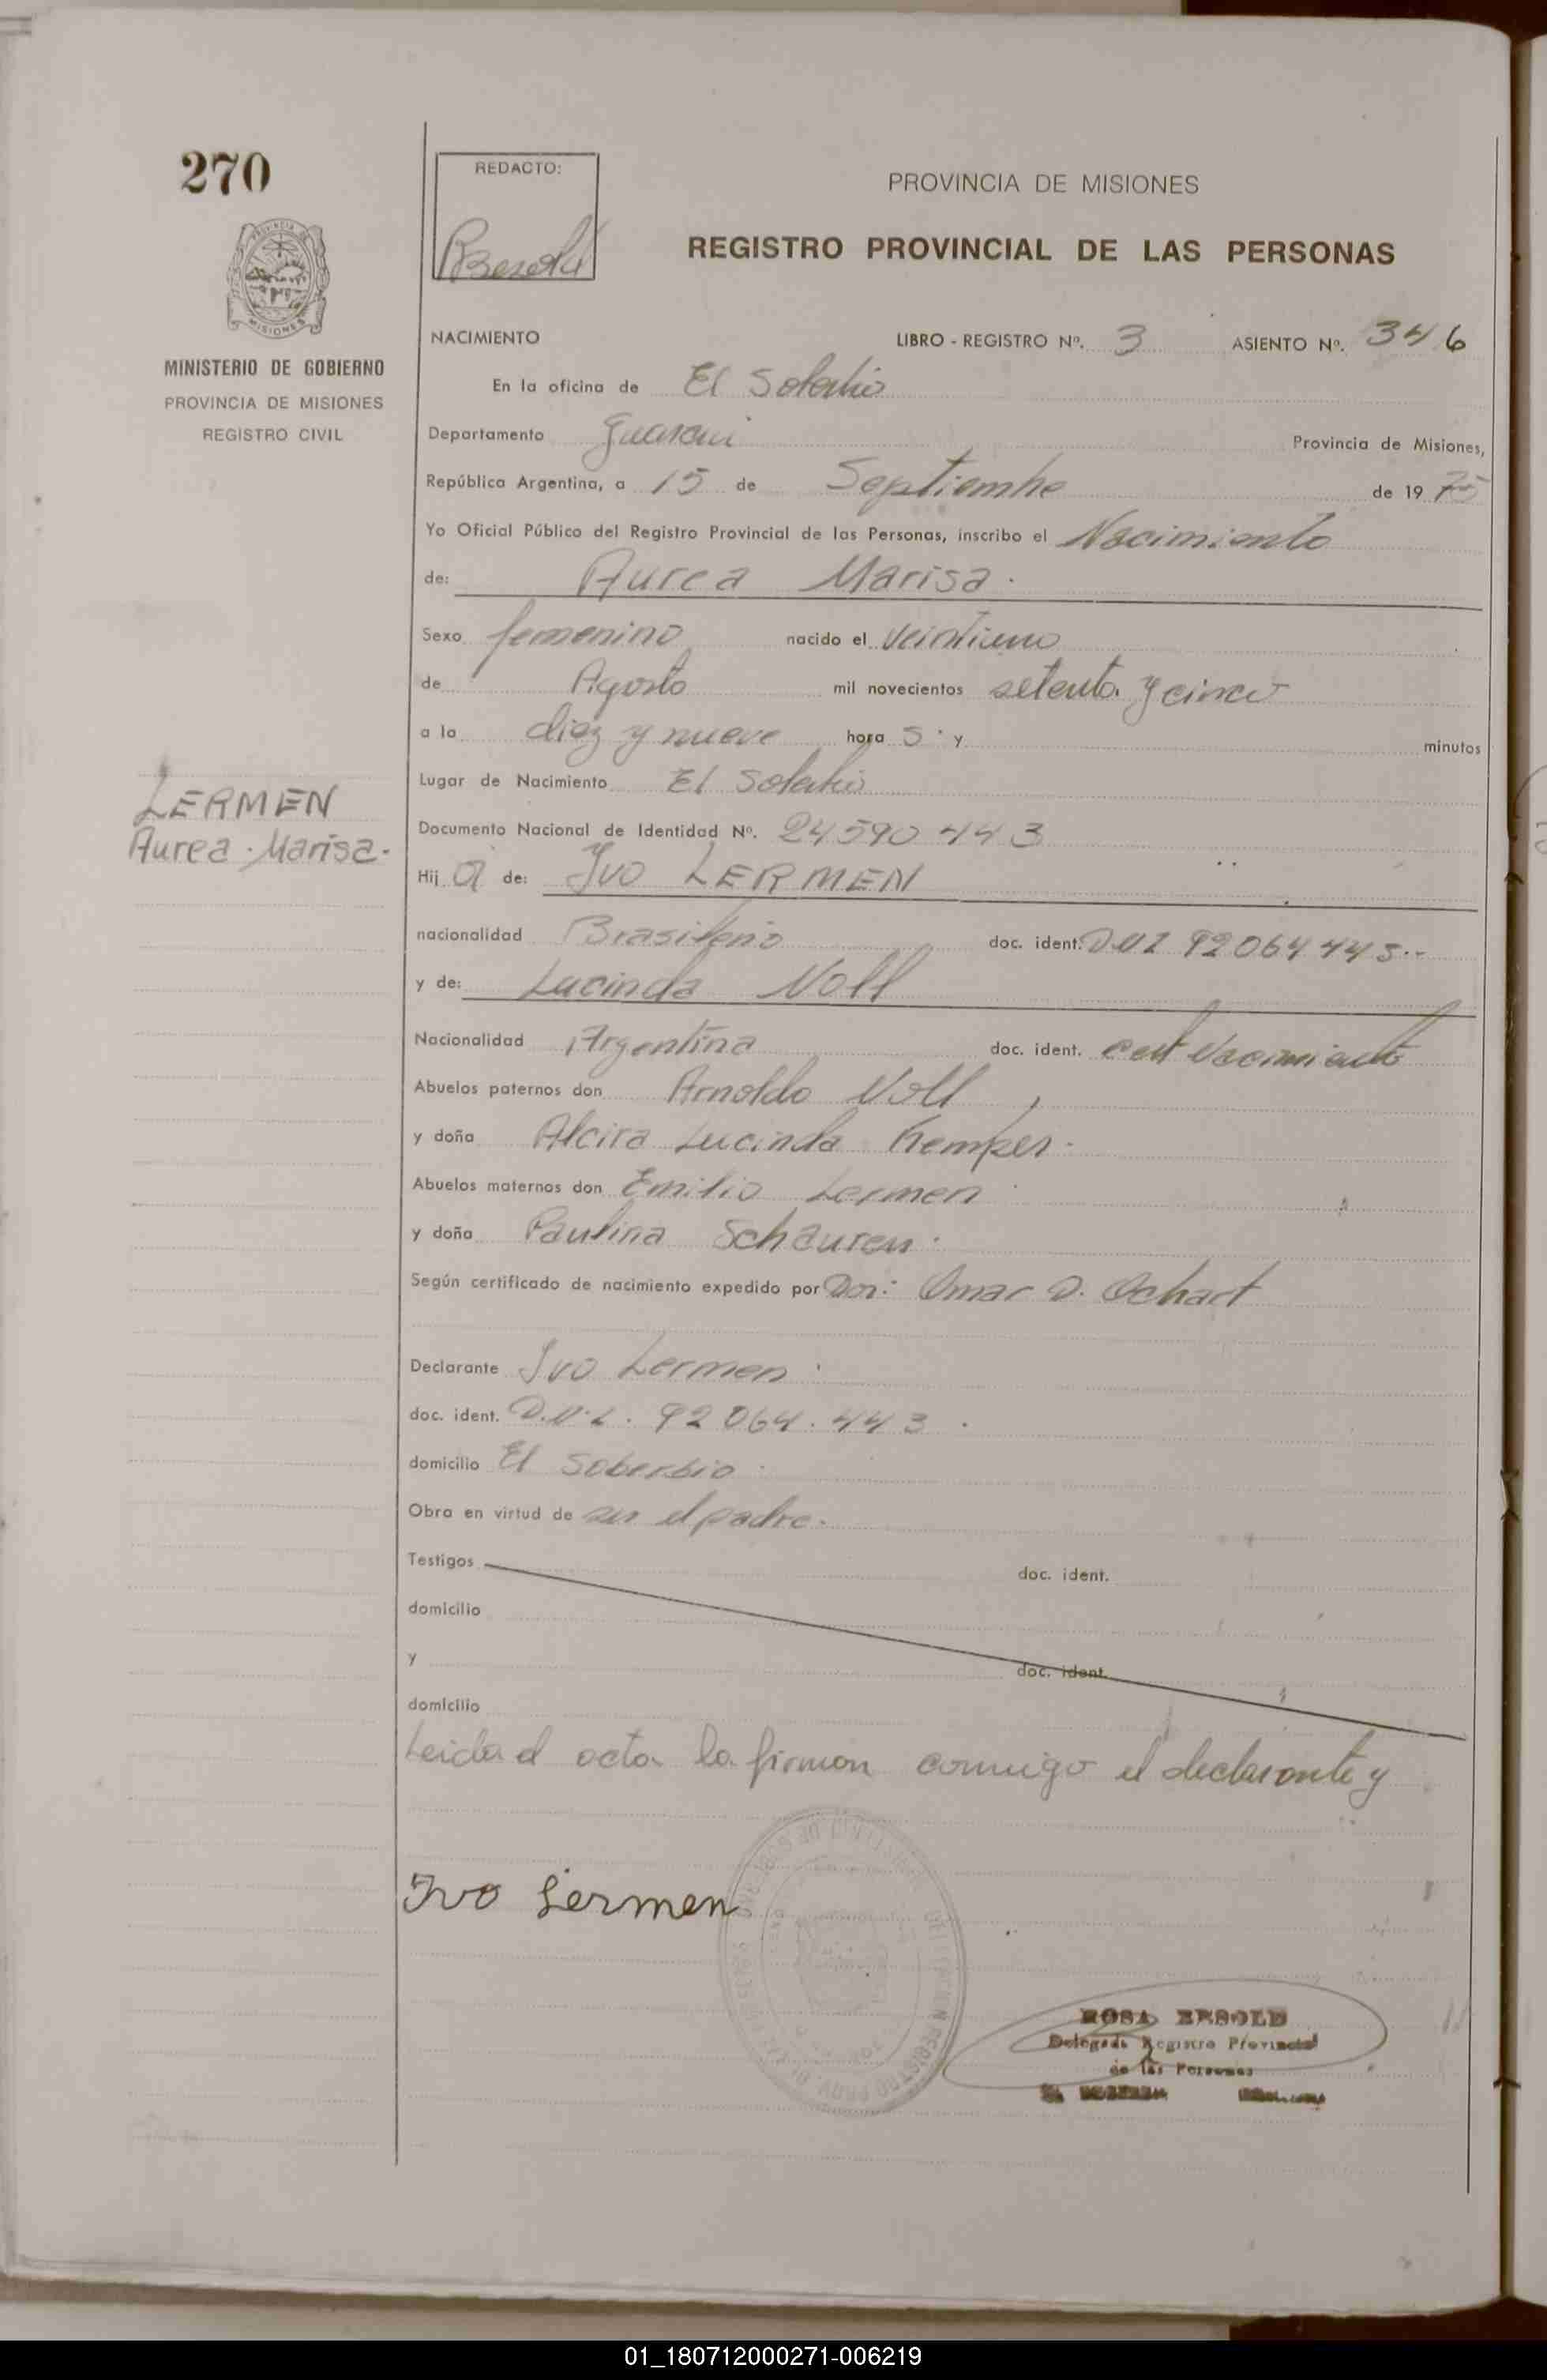 270
REDACTO:
PROVINCIA DE MISIONES
REGISTRO PROVINCIAL DE LAS PERSONAS
MISIONES
MINISTERIO DE GOBIERNO
PROVINCIA DE MISIONES
REGISTRO CIVIL
NACIMIENTO LIBRO - REGISTRO Nº. 3 ASIENTO Nº. 346
En la oficina de El Soberbio
Departamento Guarani Provincia de Misiones,
República Argentina, a 15 de Septiembre de 1975
Yo Oficial Público del Registro Provincial de las Personas, inscribo el Nacimiento
de: Aurea Marisa.
Sexo femenino nacido el veintiuno
de Agosto mil novecientos setenta y cinco
a la diez y nueve hora s. y minutos
Lugar de Nacimiento El Soberbio
LERMEN
Aurea Marisa.
Documento Nacional de Identidad Nº. 24590443
Hij a de: Ivo LERMEN
nacionalidad Brasileño doc. ident. 92064443.-
y de: Lucinda Noll
Nacionalidad Argentina doc. ident. cert Nacimiento
Abuelos paternos don Arnoldo Noll
y doña Alcira Lucinda Kemper.
Abuelos maternos don Emilio Lermen
y doña Paulina Schauren.
Según certificado de nacimiento expedido por Omar D. Ochart
Declarante Ivo Lermen
doc. ident. 92064.443.
domicilio El Soberbio.
Obra en virtud de ser el padre.
Testigos doc. ident.
domicilio
y doc. ident.
domicilio
Leida el acta la firman conmigo el declarante y
Ivo Lermen
ROSA
Delegada Registro Provincial
de las Personas
01_180712000271-006219